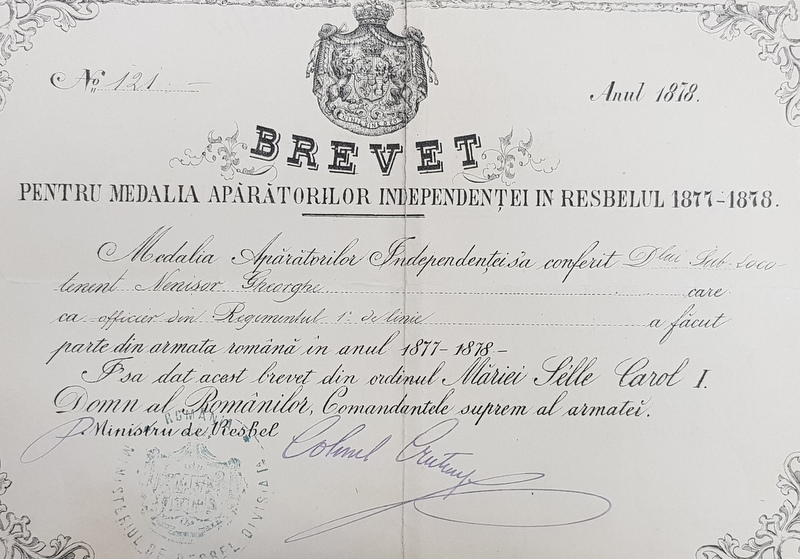 No 121
Anul 1878.
BREVET
PENTRU MEDALIA APĂRĂTORILOR INDEPENDENȚEI IN RESBELUL 1877-1878.
Medalia Apărătorilor Independenței s'a conferit Dlui Sub-Loco
tenent Nenișor Gheorghe care
ca officier din Regimentul 1º de linie a făcut
parte din armata română în anul 1877-1878-
I s'a dat acest brevet din ordinul Măriei Sélle Carol I.
Domn al Românilor, Comandantele suprem al armatei.
p. Ministru de Resbel
Colonel
ROMANIA
MINISTERIUL DE RESBEL DIVISIA